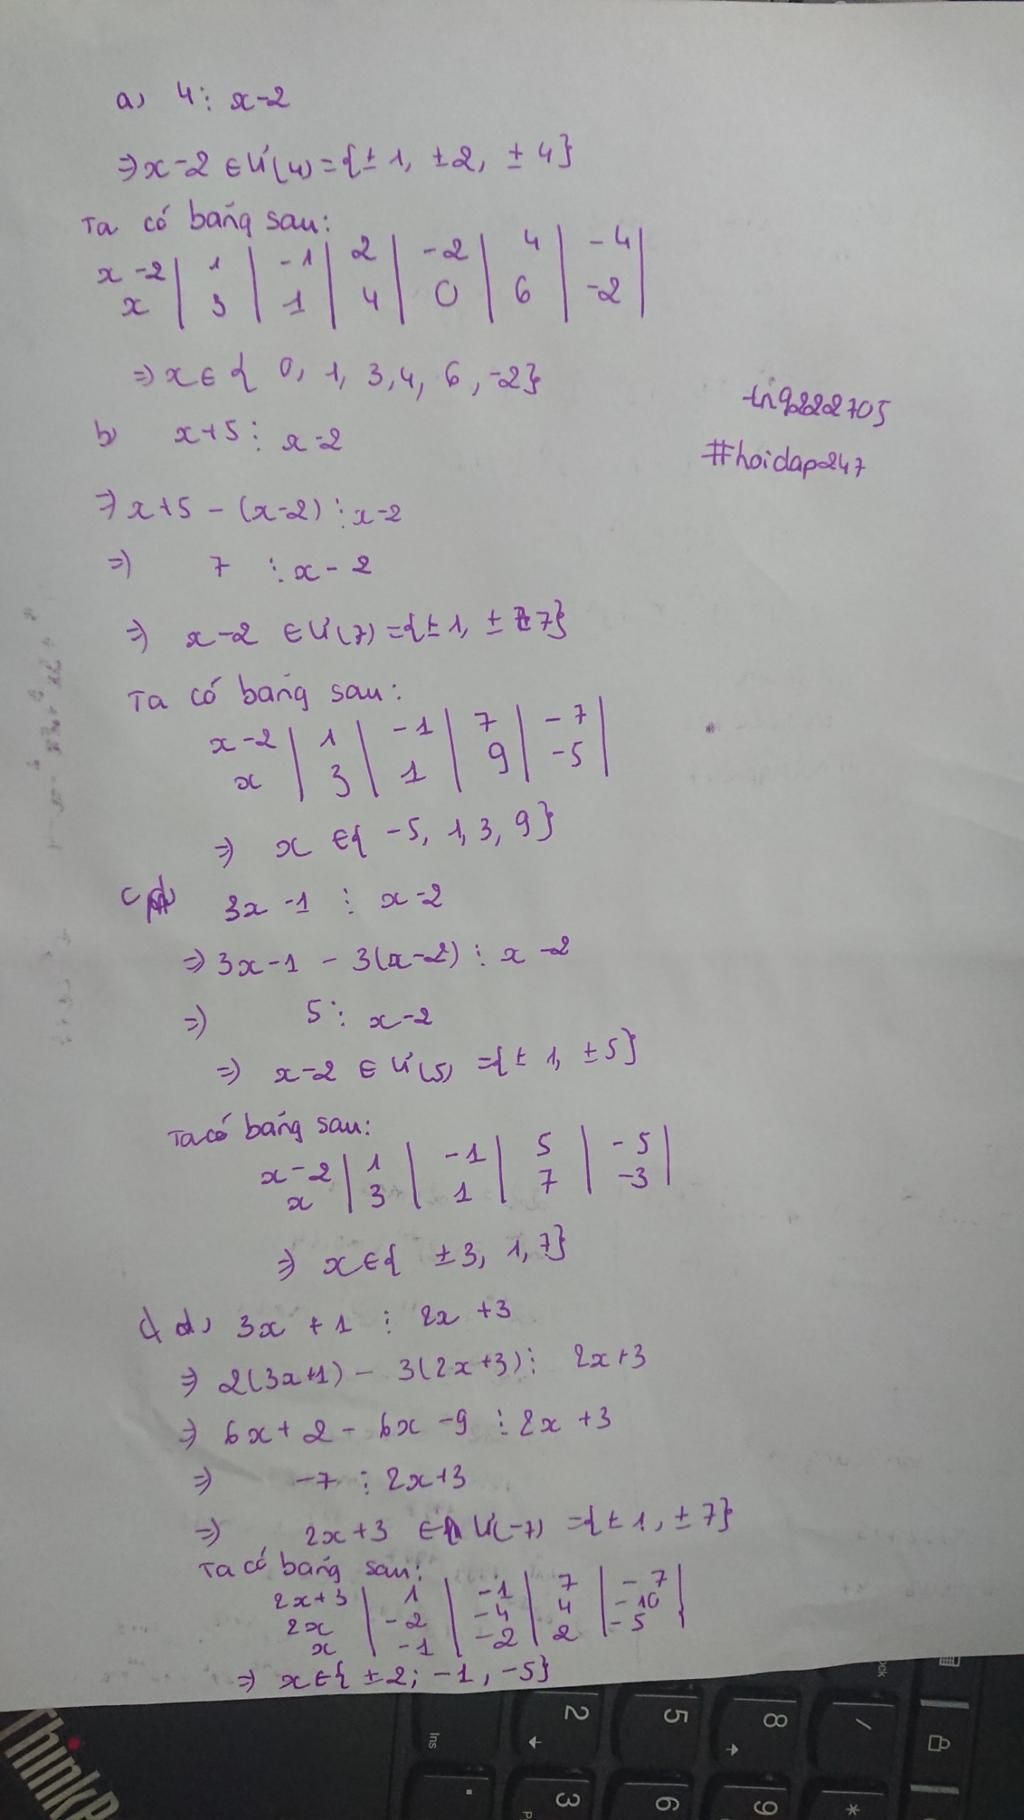 a) 4 ⋮ x-2
⇒ x-2 ∈ Ư(4) = {±1, ±2, ±4}
Ta có bảng sau:
x-2 | 1 | -1 | 2 | -2 | 4 | -4 |
x | 3 | 1 | 4 | 0 | 6 | -2 |
⇒ x ∈ { 0, 1, 3, 4, 6, -2}
#hoidap247
b) x+5 ⋮ x-2
⇒ x+5 - (x-2) ⋮ x-2
⇒ 7 ⋮ x-2
⇒ x-2 ∈ Ư(7) = {±1, ±7}
Ta có bảng sau:
x-2 | 1 | -1 | 7 | -7 |
x | 3 | 1 | 9 | -5 |
⇒ x ∈ { -5, 1, 3, 9}
c) 3x-1 ⋮ x-2
⇒ 3x-1 - 3(x-2) ⋮ x-2
⇒ 5 ⋮ x-2
⇒ x-2 ∈ Ư(5) = {±1, ±5}
Ta có bảng sau:
x-2 | 1 | -1 | 5 | -5 |
x | 3 | 1 | 7 | -3 |
⇒ x ∈ { ±3, 1, 7}
d) 3x+1 ⋮ 2x+3
⇒ 2(3x+1) - 3(2x+3) ⋮ 2x+3
⇒ 6x+2 - 6x-9 ⋮ 2x+3
⇒ -7 ⋮ 2x+3
⇒ 2x+3 ∈ Ư(-7) = {±1, ±7}
Ta có bảng sau:
2x+3 | 1 | -1 | 7 | -7 |
2x | -2 | -4 | 4 | -10 |
x | -1 | -2 | 2 | -5 |
⇒ x ∈ { ±2; -1, -5}
ThinkP
Ins
2
5
8
/
3
6
9
*